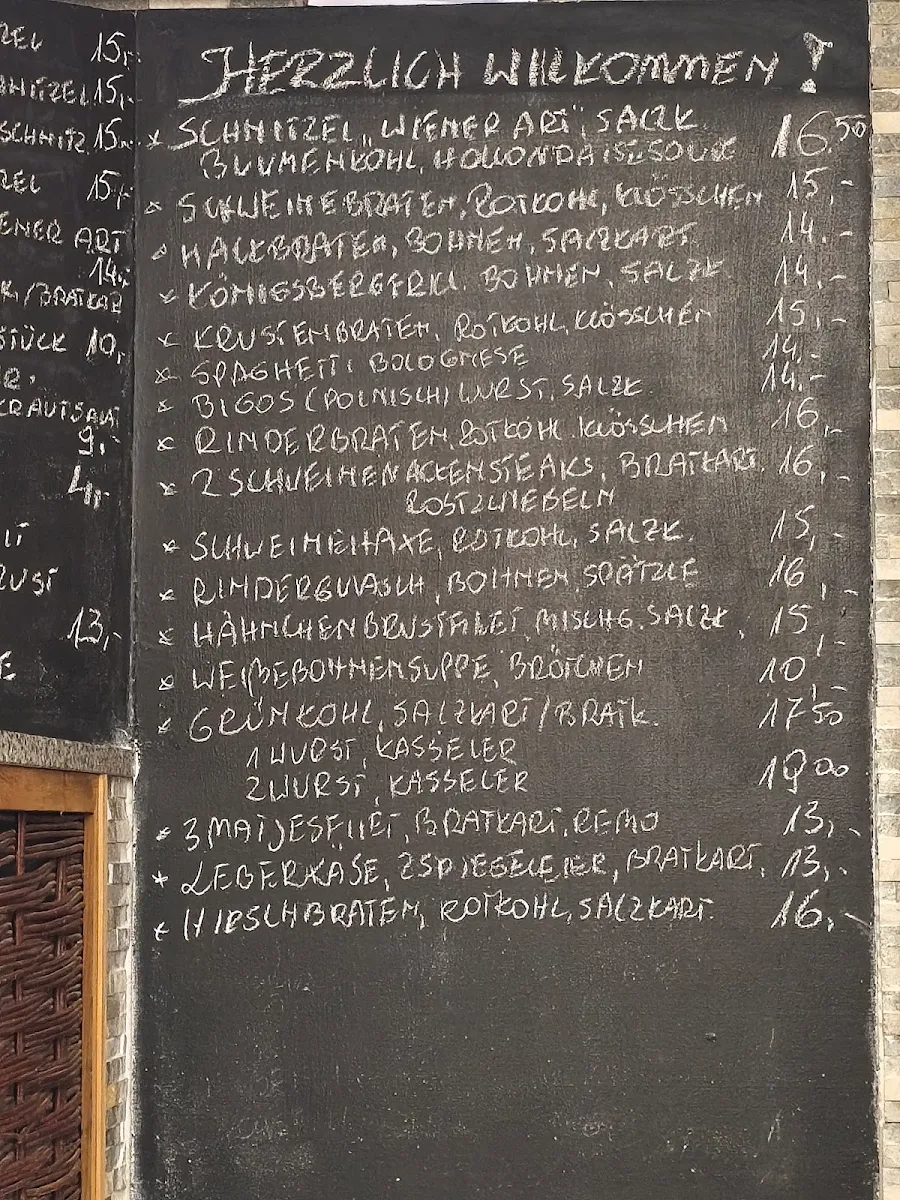 ZEL 15,-
HNITZEL 15,-
SCHNITZ. 15,-
ZEL 15,-
ENER ART
14,-
K/BRATKAR
STÜCK 10,
R.
KRAUTSALAT
9,-
4,-
IT
RUST
13,-
E
HERZLICH WILLKOMMEN!
* SCHNITZEL „WIENER ART", SALZK 16,50
BLUMENKOHL, HOLLONDAISESOUCE
* SCHWEINEBRATEN, ROTKOHL, KLÖSSCHEN 15,-
* HACKBRATEN, BOHNEN, SALZKART. 14.-
* KÖNIGSBERGERKL. BOHNEN, SALZK 14,-
* KRUSTENBRATEN, ROTKOHL, KLÖSSCHEN 15,-
* SPAGHETTI BOLOGNESE 14,-
* BIGOS (POLNISCH) WURST, SALZK. 14.-
* RINDERBRATEN, ROTKOHL. KLÖSSCHEN 16,-
* 2 SCHWEINENACKENSTEAKS, BRATKART. 16,-
RÖSTZWIEBELN
* SCHWEINEHAXE, ROTKOHL, SALZK. 15,-
* RINDERGULASCH, BOHNEN, SPÄTZLE 16,-
* HÄHNCHENBRUSTFILET, MISCHG. SALZK, 15,-
* WEIßEBOHNENSUPPE, BRÖTCHEN 10,-
* GRÜNKOHL, SALZKART/BRATK. 17,50
1 WURST, KASSELER
2 WURST, KASSELER 19,00
* 3 MATJESFILET, BRATKART, REMO 13,-
* LEBERKÄSE, 2 SPIEGELEIER, BRATKART, 13,-
* HIRSCHBRATEN, ROTKOHL, SALZKART. 16,-